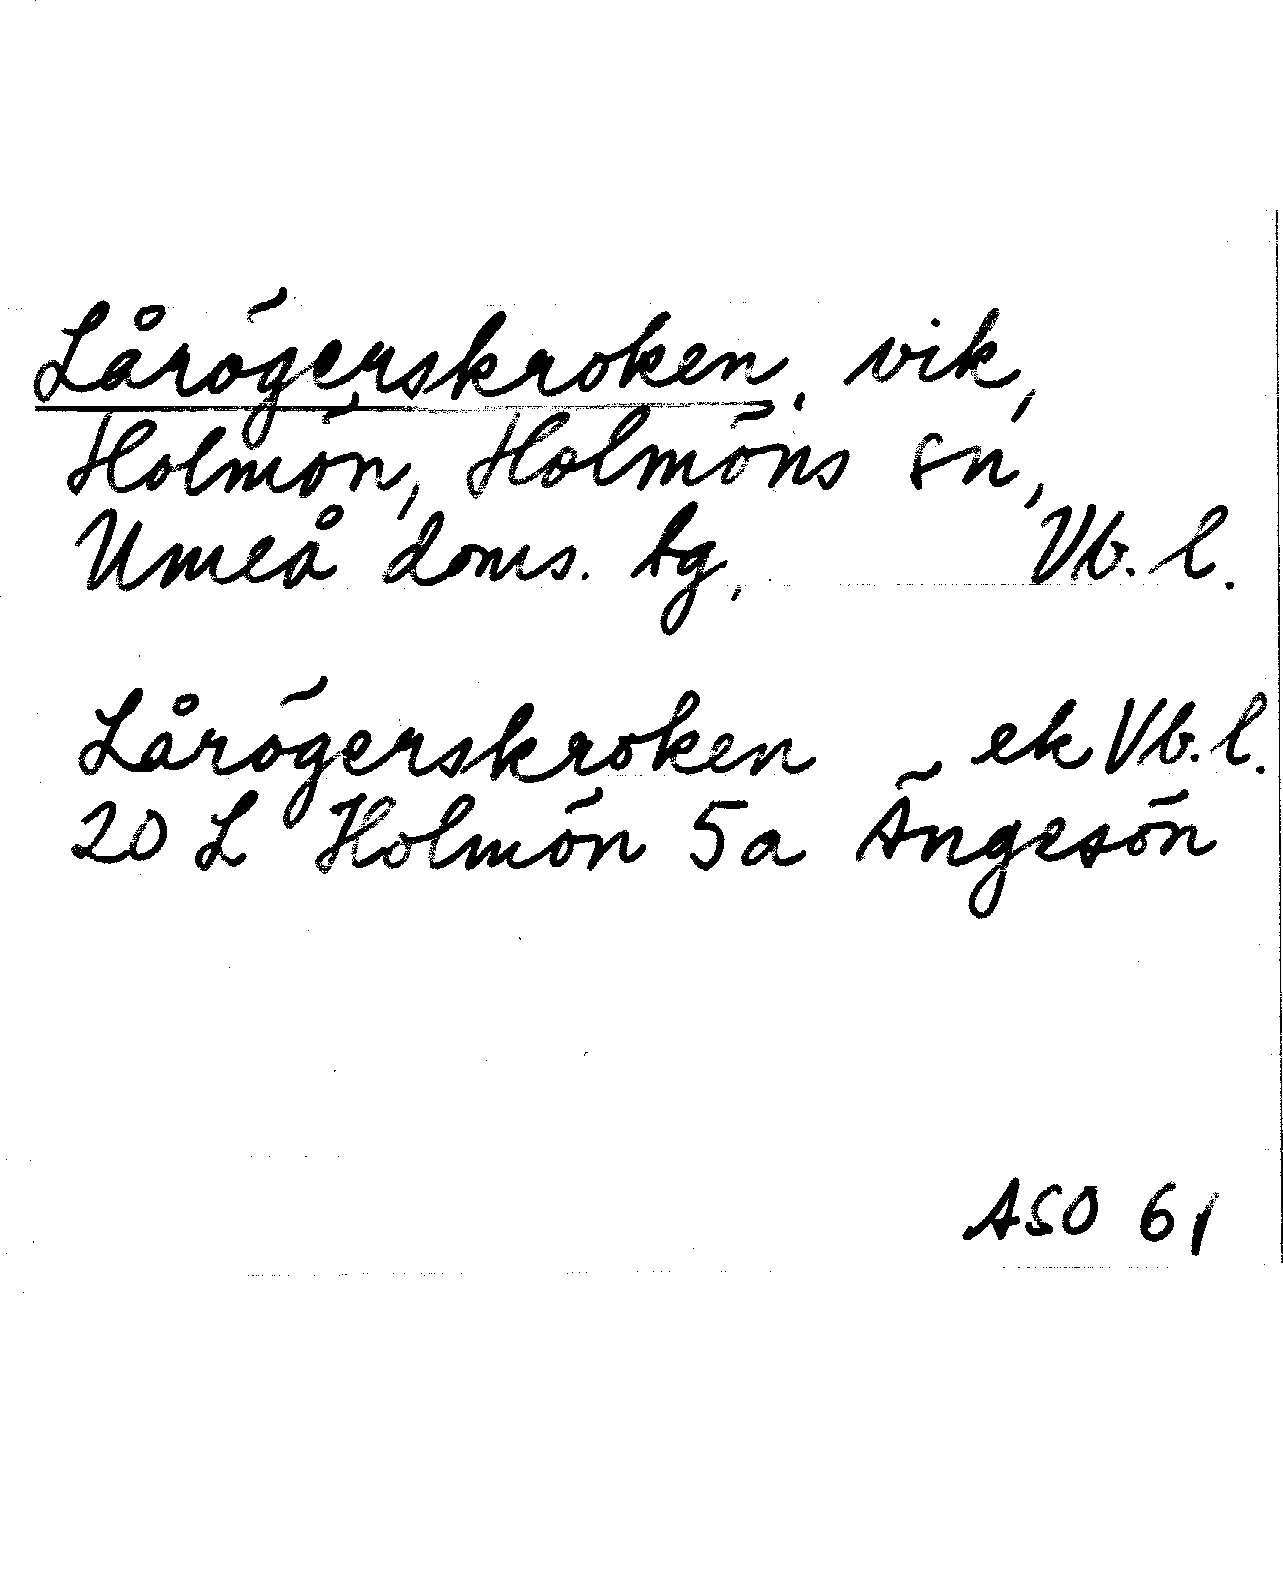 Lårögerskroken, vik,
Holmön, Holmöns sn,
Umeå doms. tg, Vb. l.
Lårögerskroken ek Vb. l.
20 L Holmön 5a Ängesön
ASO 61